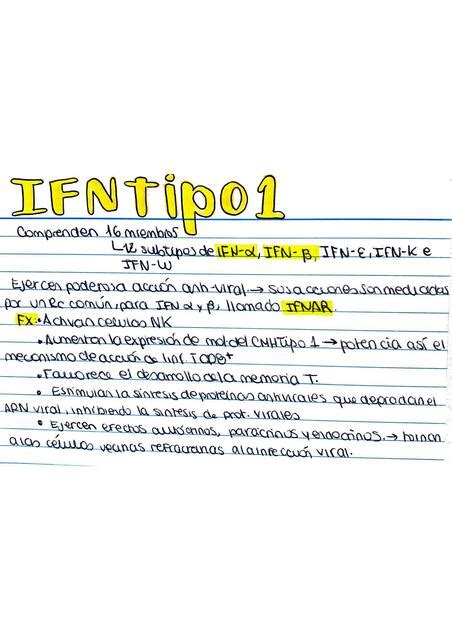 IFN tipo 1
Comprenden 16 miembros
↳12 subtipos de IFN-α, IFN-β, IFN-ε, IFN-K e
IFN-W
Ejercen poderosa acción anti-viral → sus acciones son mediadas
por un Rc común, para IFN α y β, llamado IFNAR.
Ex: • Activan celulas NK
• Aumentan la expresión de mol del CMHTipo 1 → potencia así el
mecanismo de acción de linf. TCD8+
• Favorece el desarrollo de la memoria T.
• Estimulan la sintesis de proteinas antivirales que degradan el
ARN viral, inhibiendo la sintesis de prot. virales
• Ejercen efectos autocrinos, paracrinos y endocrinos. →
a las células vecinas refractarias a la infección viral.